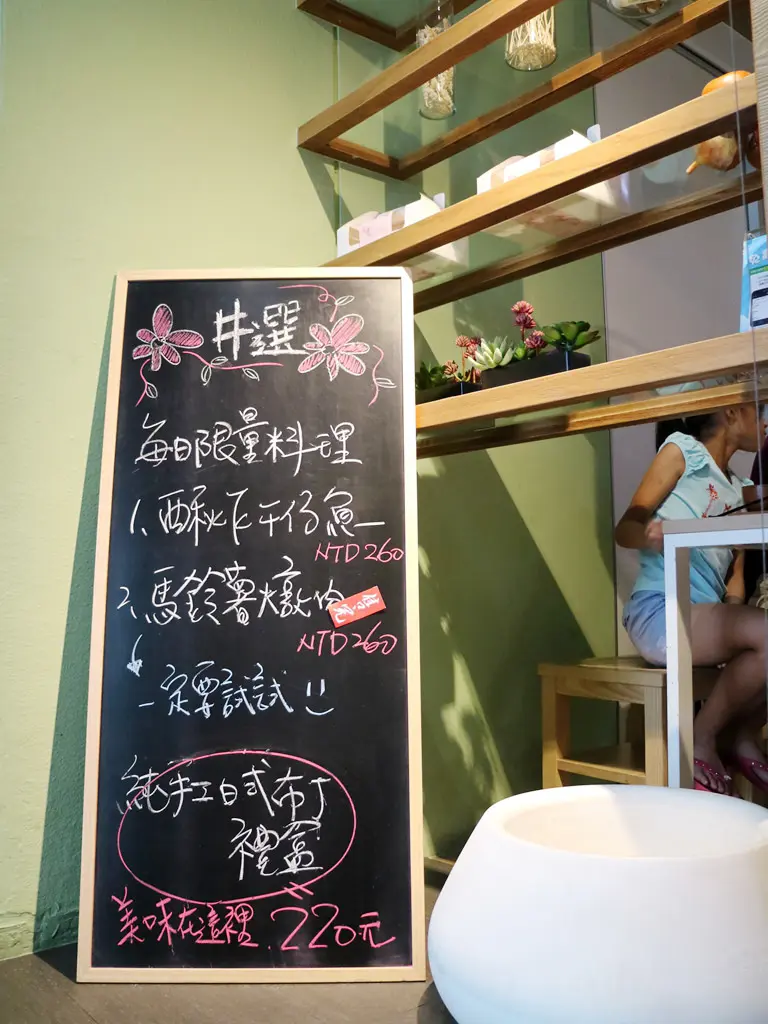 井選
每日限量料理
1、酥秋下干仔魚
NTD260
2、馬鈴薯燉肉
售完
NTD260
一定要試試
純手工日式布丁
禮盒
美味在這裡.220元